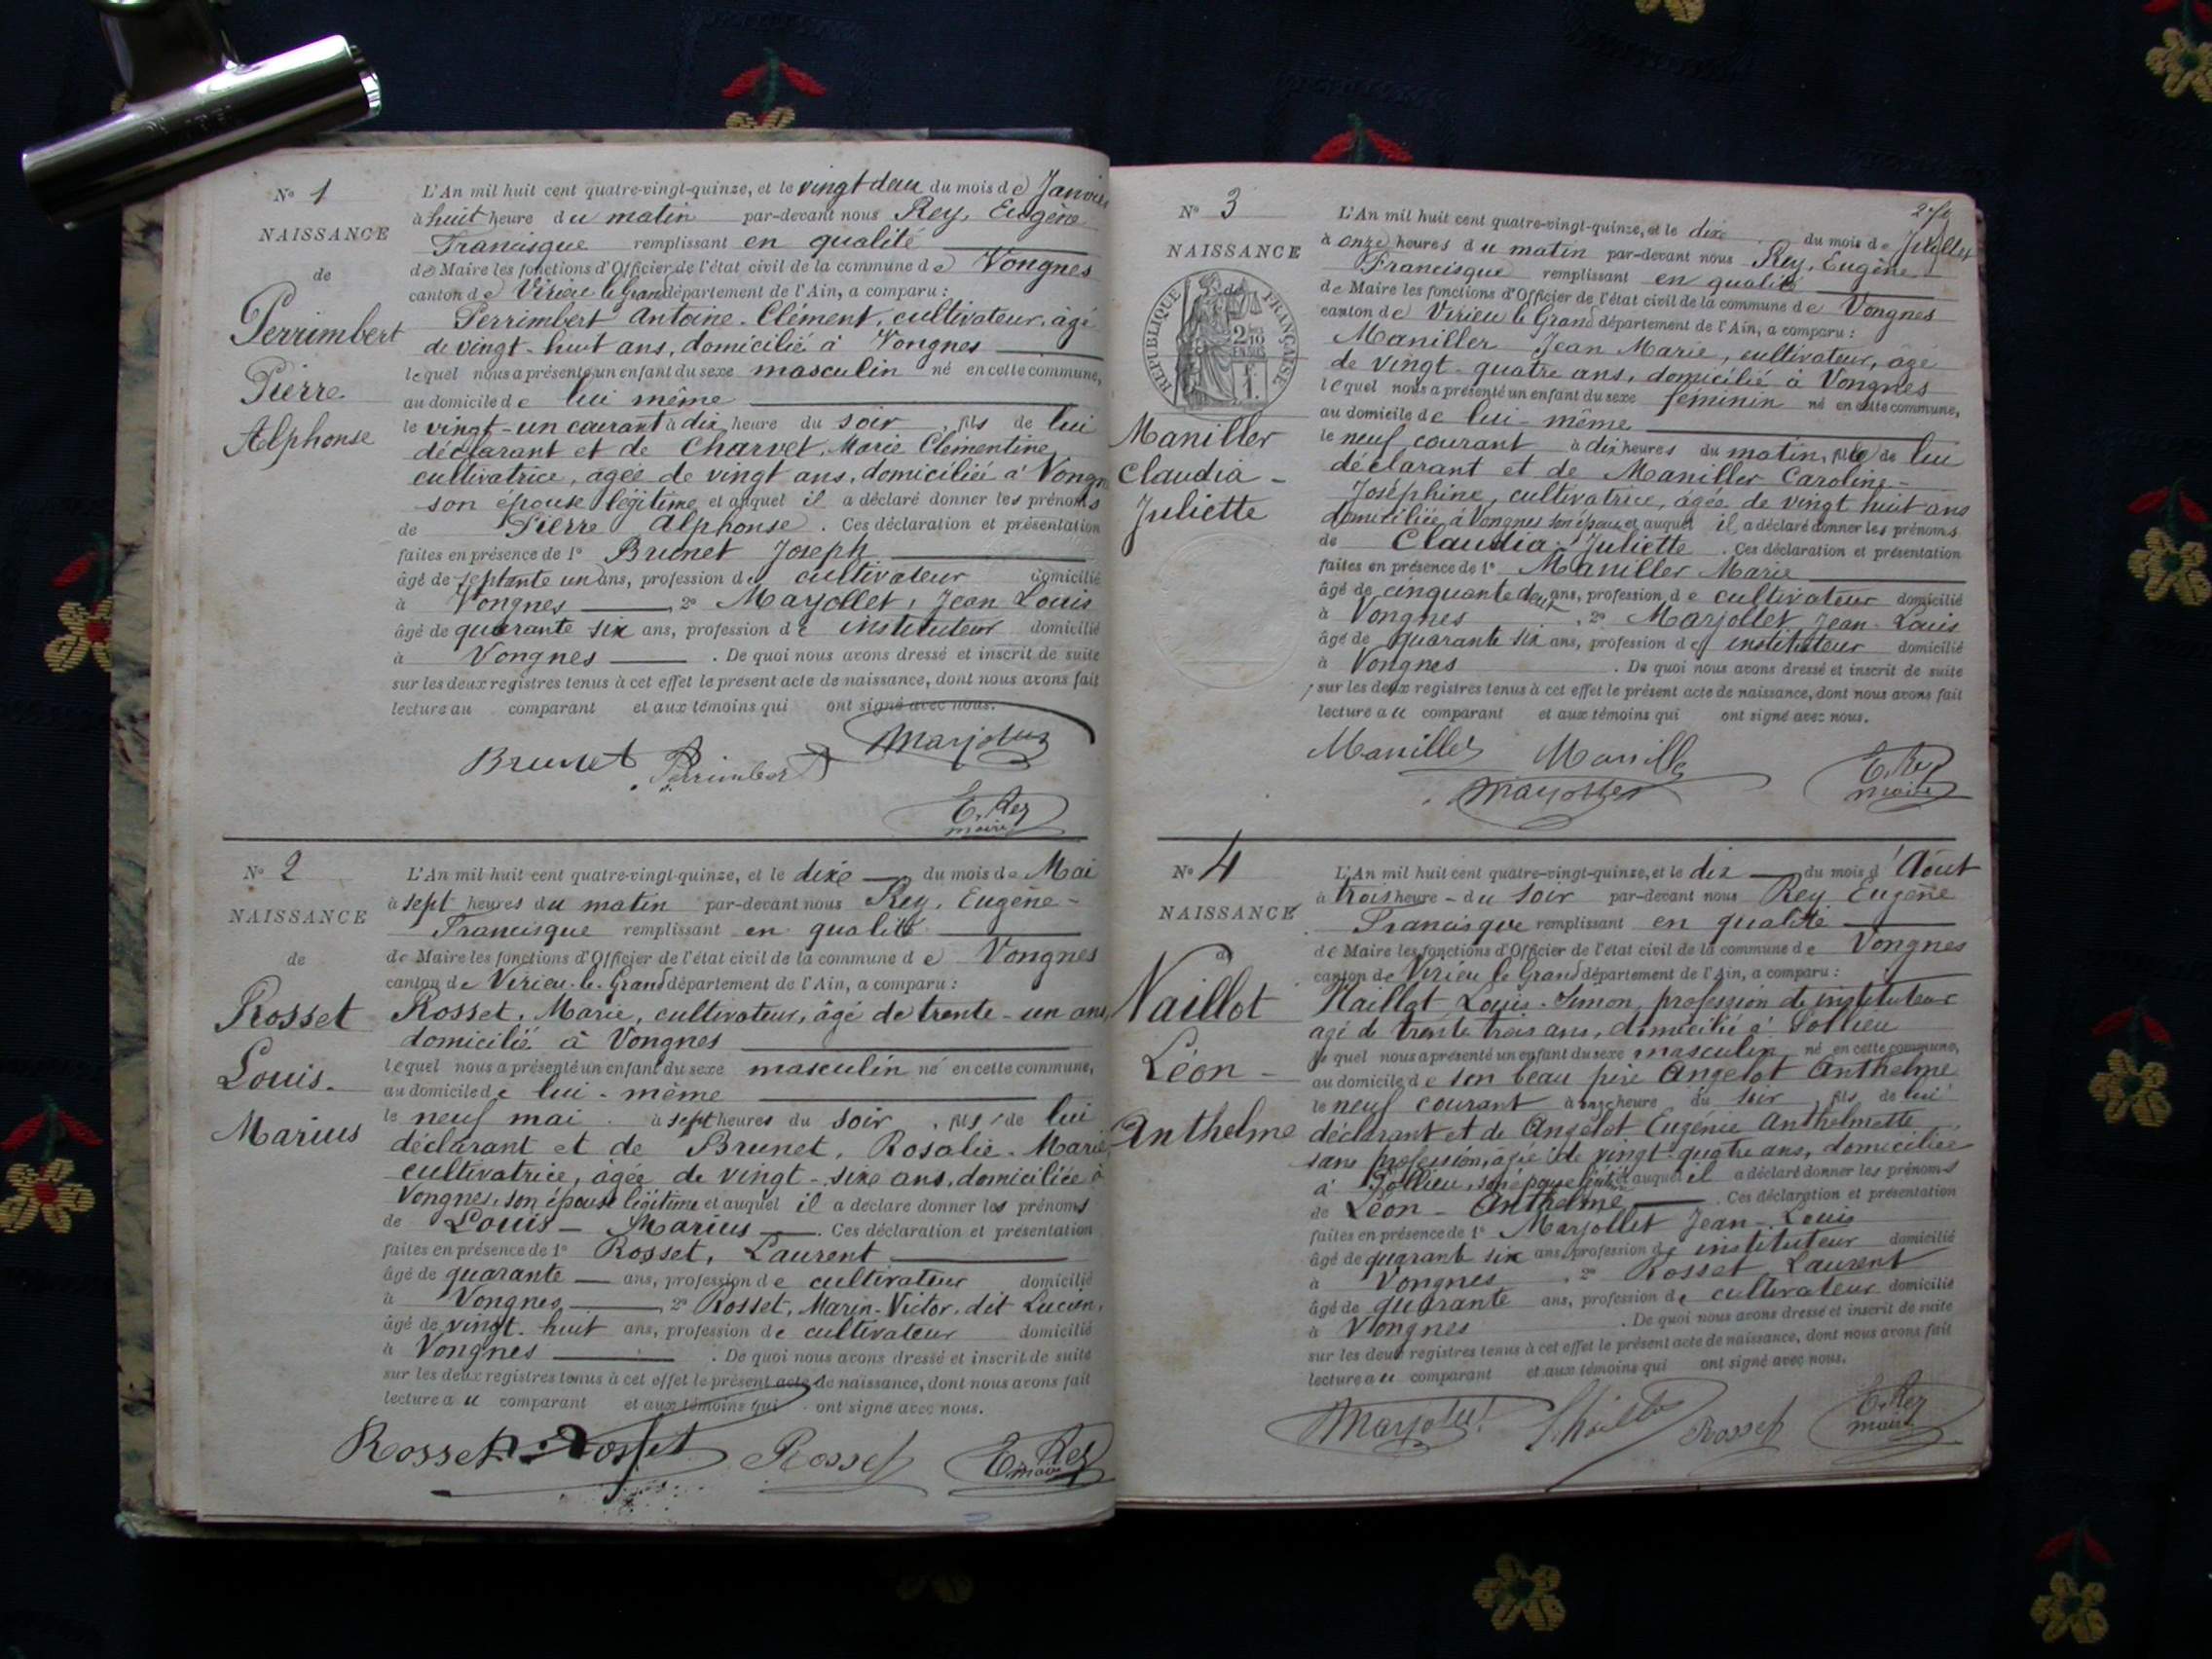 N° 1
NAISSANCE
de
Perrimbert
Pierre
Alphonse
L'An mil huit cent quatre-vingt-quinze, et le vingt deux du mois de Janvier
à huit heure du matin par-devant nous Rey, Eugène
Francisque remplissant en qualité
de Maire les fonctions d'Officier de l'état civil de la commune de Vongnes
canton de Virieu le Grand département de l'Ain, a comparu :
Perrimbert Antoine-Clément, cultivateur, âgé
de vingt-huit ans, domicilié à Vongnes
lequel nous a présenté un enfant du sexe masculin né en cette commune,
au domicile de lui même
le vingt-un courant à dix heure du soir, fils de lui
déclarant et de Charvet, Marie Clémentine
cultivatrice, agée de vingt ans, domiciliée à Vongnes
son épouse légitime et auquel il a déclaré donner les prénoms
de Pierre Alphonse. Ces déclaration et présentation
faites en présence de 1° Brunet Joseph
âgé de septante un ans, profession de cultivateur domicilié
à Vongnes, 2° Marjollet, Jean Louis
âgé de quarante six ans, profession de instituteur domicilié
à Vongnes. De quoi nous avons dressé et inscrit de suite
sur les deux registres tenus à cet effet le présent acte de naissance, dont nous avons fait
lecture au comparant et aux témoins qui ont signé avec nous.
Brunet Perrimbert Marjollet
E. Rey
maire
N° 2
NAISSANCE
de
Rosset
Louis-
Marius
L'An mil huit cent quatre-vingt-quinze, et le dixe du mois de Mai
à sept heures du matin par-devant nous Rey, Eugène-
Francisque remplissant en qualité
de Maire les fonctions d'Officier de l'état civil de la commune de Vongnes
canton de Virieu-le-Grand département de l'Ain, a comparu :
Rosset, Marie, cultivateur, âgé de trente-un ans,
domicilié à Vongnes
lequel nous a présenté un enfant du sexe masculin né en cette commune,
au domicile de lui-même
le neuf mai à sept heures du soir, fils de lui
déclarant et de Brunet, Rosalie-Marie,
cultivatrice, âgée de vingt-sixe ans, domiciliée à
Vongnes, son épouse légitime et auquel il a déclaré donner les prénoms
de Louis-Marius. Ces déclaration et présentation
faites en présence de 1° Rosset, Laurent
âgé de quarante ans, profession de cultivateur domicilié
à Vongnes, 2° Rosset, Marin-Victor, dit Lucien,
âgé de vingt-huit ans, profession de cultivateur domicilié
à Vongnes. De quoi nous avons dressé et inscrit de suite
sur les deux registres tenus à cet effet le présent acte de naissance, dont nous avons fait
lecture au comparant et aux témoins qui ont signé avec nous.
Rosset Rosset Rosset E. Rey
maire
N° 3
NAISSANCE
de
RÉPUBLIQUE FRANÇAISE
Maniller
Claudia-
Juliette
L'An mil huit cent quatre-vingt-quinze, et le dixe du mois de Juillet
à onze heures du matin par-devant nous Rey, Eugène
Francisque remplissant en qualité
de Maire les fonctions d'Officier de l'état civil de la commune de Vongnes
canton de Virieu le Grand département de l'Ain, a comparu :
Maniller Jean Marie, cultivateur, âgé
de vingt-quatre ans, domicilié à Vongnes
lequel nous a présenté un enfant du sexe féminin né en cette commune,
au domicile de lui-même
le neuf courant à dix heures du matin, fille de lui
déclarant et de Maniller Caroline-
Joséphine, cultivatrice, âgée de vingt huit ans
domiciliée à Vongnes son épouse et auquel il a déclaré donner les prénoms
de Claudia-Juliette. Ces déclaration et présentation
faites en présence de 1° Maniller Marie
âgé de cinquante deux ans, profession de cultivateur domicilié
à Vongnes, 2° Marjollet Jean-Louis
âgé de quarante six ans, profession de instituteur domicilié
à Vongnes. De quoi nous avons dressé et inscrit de suite
sur les deux registres tenus à cet effet le présent acte de naissance, dont nous avons fait
lecture au comparant et aux témoins qui ont signé avec nous.
Maniller Maniller E. Rey
Marjollet maire
N° 4
NAISSANCE
de
Naillot
Léon-
Anthelme
L'An mil huit cent quatre-vingt-quinze, et le dix du mois d'Août
à trois heure du soir par-devant nous Rey Eugène
Francisque remplissant en qualité
de Maire les fonctions d'Officier de l'état civil de la commune de Vongnes
canton de Virieu le Grand département de l'Ain, a comparu :
Naillot Louis-Simon, profession de instituteur
agé de trente trois ans, domicilié à Pollieu
lequel nous a présenté un enfant du sexe masculin né en cette commune,
au domicile de son beau père Angelot Anthelme
le neuf courant à onze heure du soir, fils de lui
déclarant et de Angelot Eugénie Anthelmette
sans profession, agée de vingt-quatre ans, domiciliée
à Pollieu, son épouse légitime et auquel il a déclaré donner les prénoms
de Léon-Anthelme. Ces déclaration et présentation
faites en présence de 1° Marjollet Jean-Louis
âgé de quarante six ans, profession de instituteur domicilié
à Vongnes, 2° Rosset Laurent
âgé de quarante ans, profession de cultivateur domicilié
à Vongnes. De quoi nous avons dressé et inscrit de suite
sur les deux registres tenus à cet effet le présent acte de naissance, dont nous avons fait
lecture au comparant et aux témoins qui ont signé avec nous.
Marjollet Rosset E. Rey
maire